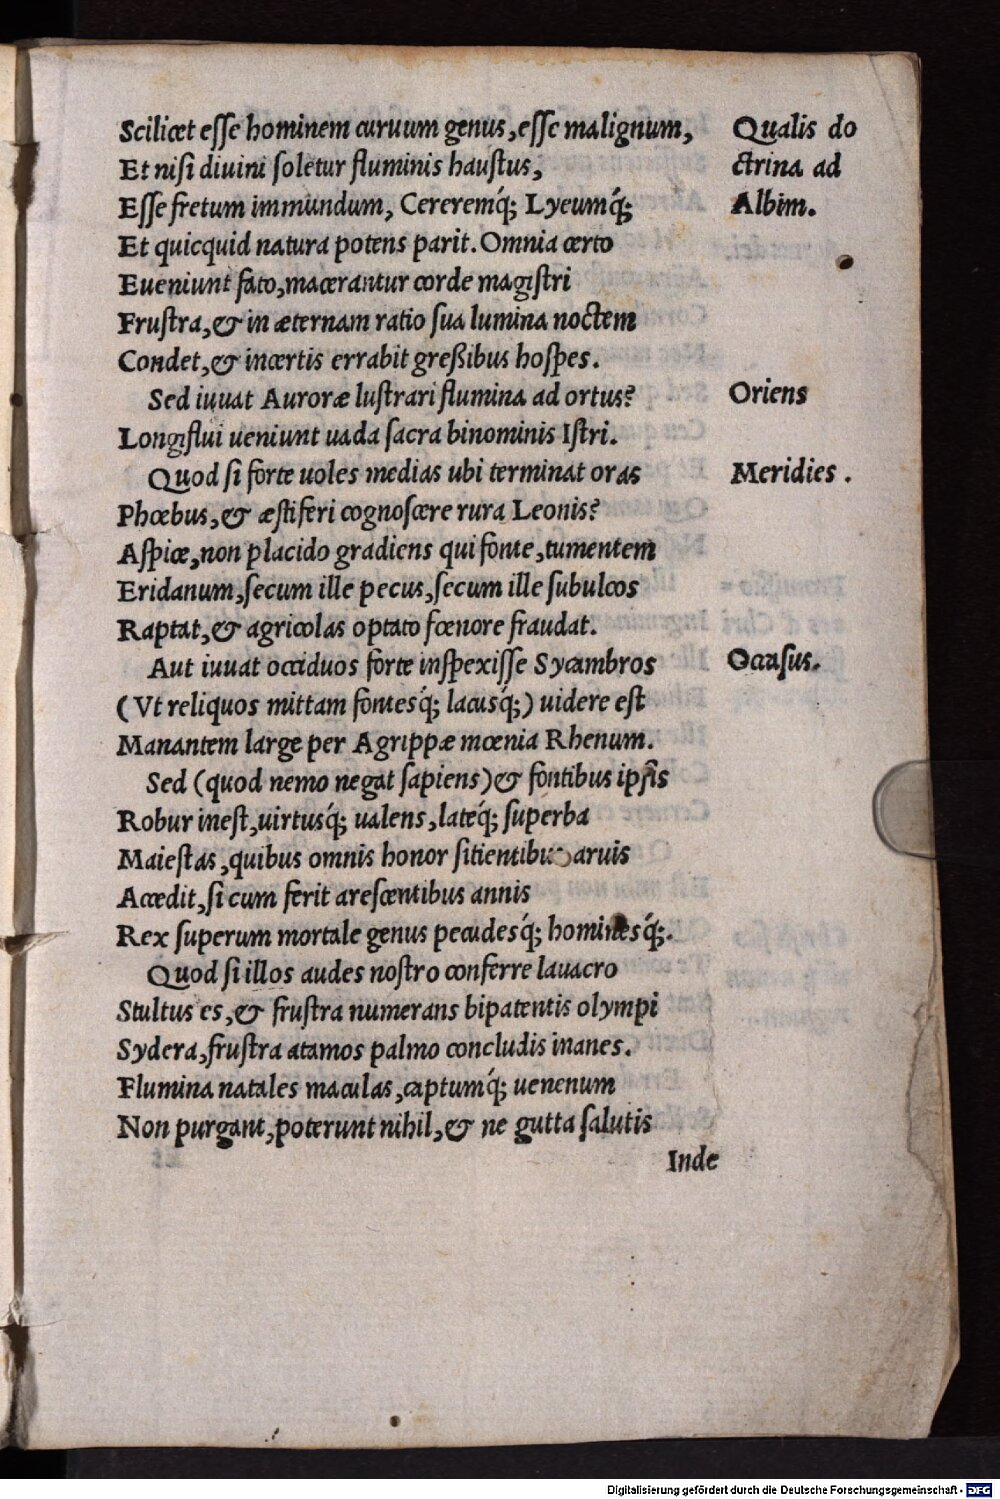 Scilicet esse hominem curuum genus, esse malignum,
Qualis do
Et nisi diuini soletur fluminis haustus,
ctrina ad
Esse fretum immundum, Cereremq́; Lyeumq́;
Albim.
Et quicquid natura potens parit. Omnia certo
Eueniunt fato, macerantur corde magistri
Frustra, & in æternam ratio sua lumina noctem
Condet, & incertis errabit greßibus hospes.
Sed iuuat Auroræ lustrari flumina ad ortus?
Oriens
Longiflui ueniunt uada sacra binominis Istri.
Quod si forte uoles medias ubi terminat oras
Meridies.
Phœbus, & æstiferi cognoscere rura Leonis?
Aspice, non placido gradiens qui fonte, tumentem
Eridanum, secum ille pecus, secum ille subulcos
Raptat, & agricolas optato fœnore fraudat.
Aut iuuat occiduos forte inspexisse Sycambros
Occasus.
(Vt reliquos mittam fontesq́; lacusq́;) uidere est
Manantem large per Agrippæ mœnia Rhenum.
Sed (quod nemo negat sapiens) & fontibus ipsis
Robur inest, uirtusq́; ualens, lateq́; superba
Maiestas, quibus omnis honor sitientibus aruis
Accedit, si cum ferit arescentibus annis
Rex superum mortale genus pecudesq́; hominesq́;.
Quod si illos audes nostro conferre lauacro
Stultus es, & frustra numerans bipatentis olympi
Sydera, frustra atamos palmo concludis inanes.
Flumina natales maculas, captumq́; uenenum
Non purgant, poterunt nihil, & ne gutta salutis
Inde
Digitalisierung gefördert durch die Deutsche Forschungsgemeinschaft - DFG